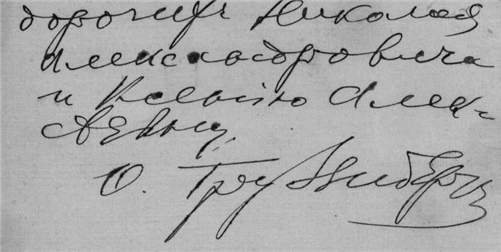 дорогихъ Николая
Александровича
и Ксенію Алек-
сѣевну
О. Грузенбергъ